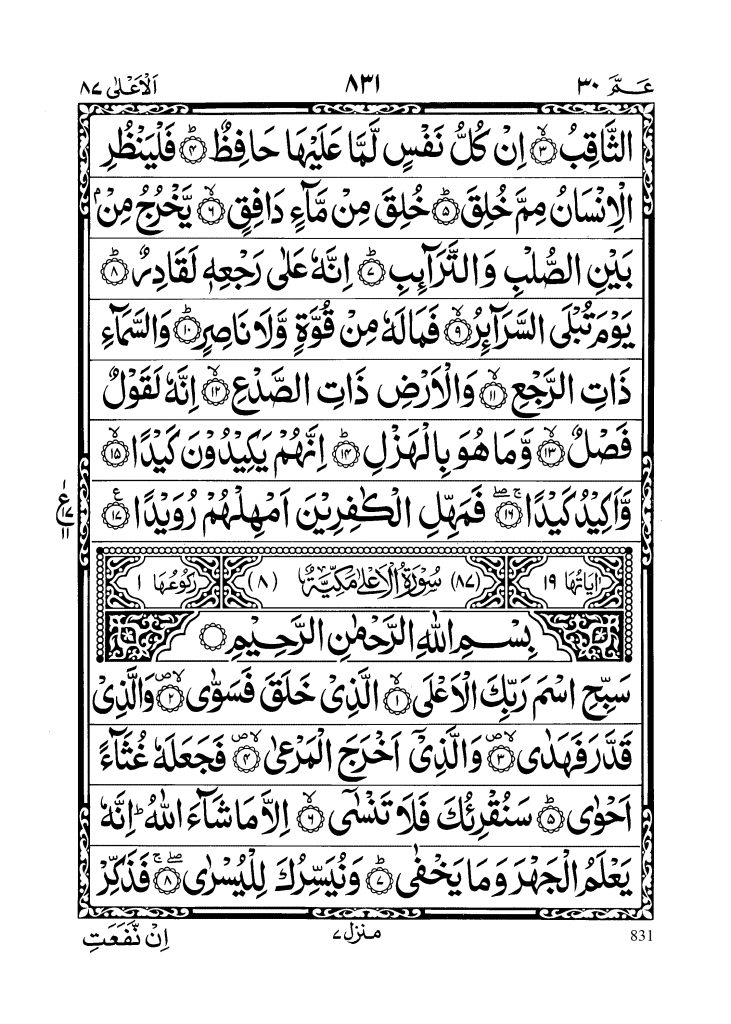 عَمَّ ٣٠ ٨٣١ اَلْاَعْلٰى ٨٧
الثَّاقِبُ ۙ﴿٣﴾ اِنْ كُلُّ نَفْسٍ لَّمَّا عَلَيْهَا حَافِظٌ ؕ﴿٤﴾ فَلْيَنْظُرِ
الْاِنْسَانُ مِمَّ خُلِقَ ؕ﴿٥﴾ خُلِقَ مِنْ مَّآءٍ دَافِقٍ ۙ﴿٦﴾ يَّخْرُجُ مِنْۢ
بَيْنِ الصُّلْبِ وَالتَّرَآئِبِ ؕ﴿٧﴾ اِنَّهٗ عَلٰى رَجْعِهٖ لَقَادِرٌ ؕ﴿٨﴾
يَوْمَ تُبْلَى السَّرَآئِرُ ۙ﴿٩﴾ فَمَا لَهٗ مِنْ قُوَّةٍ وَّلَا نَاصِرٍ ؕ﴿١٠﴾ وَالسَّمَآءِ
ذَاتِ الرَّجْعِ ۙ﴿١١﴾ وَالْاَرْضِ ذَاتِ الصَّدْعِ ۙ﴿١٢﴾ اِنَّهٗ لَقَوْلٌ
فَصْلٌ ۙ﴿١٣﴾ وَّمَا هُوَ بِالْهَزْلِ ؕ﴿١٤﴾ اِنَّهُمْ يَكِيْدُوْنَ كَيْدًا ۙ﴿١٥﴾
وَّاَكِيْدُ كَيْدًا ۚۖ﴿١٦﴾ فَمَهِّلِ الْكٰفِرِيْنَ اَمْهِلْهُمْ رُوَيْدًا ﴿١٧﴾
ع ١٧ ١١
اٰيَاتُهَا ١٩ (٨٧) سُوْرَةُ الْاَعْلٰى مَكِّيَّةٌ (٨) رُكُوْعُهَا ١
بِسْمِ اللّٰهِ الرَّحْمٰنِ الرَّحِيْمِ
سَبِّحِ اسْمَ رَبِّكَ الْاَعْلَى ۙ﴿١﴾ الَّذِيْ خَلَقَ فَسَوّٰى ۙ﴿٢﴾ وَالَّذِيْ
قَدَّرَ فَهَدٰى ۙ﴿٣﴾ وَالَّذِيْۤ اَخْرَجَ الْمَرْعٰى ۙ﴿٤﴾ فَجَعَلَهٗ غُثَآءً
اَحْوٰى ؕ﴿٥﴾ سَنُقْرِئُكَ فَلَا تَنْسٰٓى ۙ﴿٦﴾ اِلَّا مَا شَآءَ اللّٰهُ ؕ اِنَّهٗ
يَعْلَمُ الْجَهْرَ وَمَا يَخْفٰى ؕ﴿٧﴾ وَنُيَسِّرُكَ لِلْيُسْرٰى ۚۖ﴿٨﴾ فَذَكِّرْ
831 منزل ٧ اِنْ نَّفَعَتِ